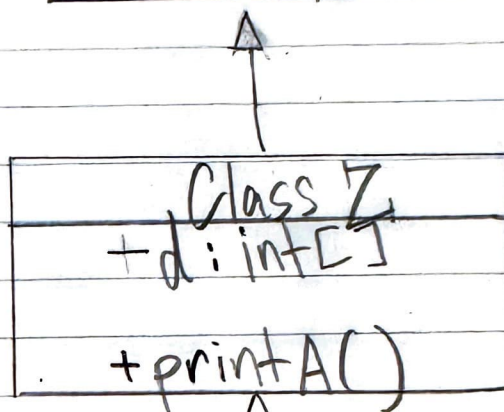 Class Z
+d: int[]
+printA()